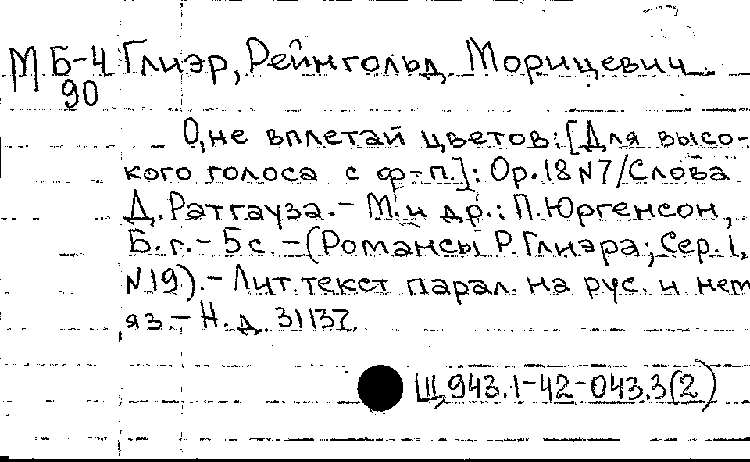 М Б-4 Глиэр, Рейнгольд Морицевич.
90
О, не вплетай цветов: [Для высо-
кого голоса с ф-п.]: Ор.18 №7/Слова
Д. Ратгауза. - М. и др.: П. Юргенсон,
Б. г. - 5 с. - (Романсы Р. Глиэра; Сер. 1,
№19). - Лит. текст парал. на рус. и нем
яз. - Н. д. 31137.
Щ943.1-42-043.3(2)